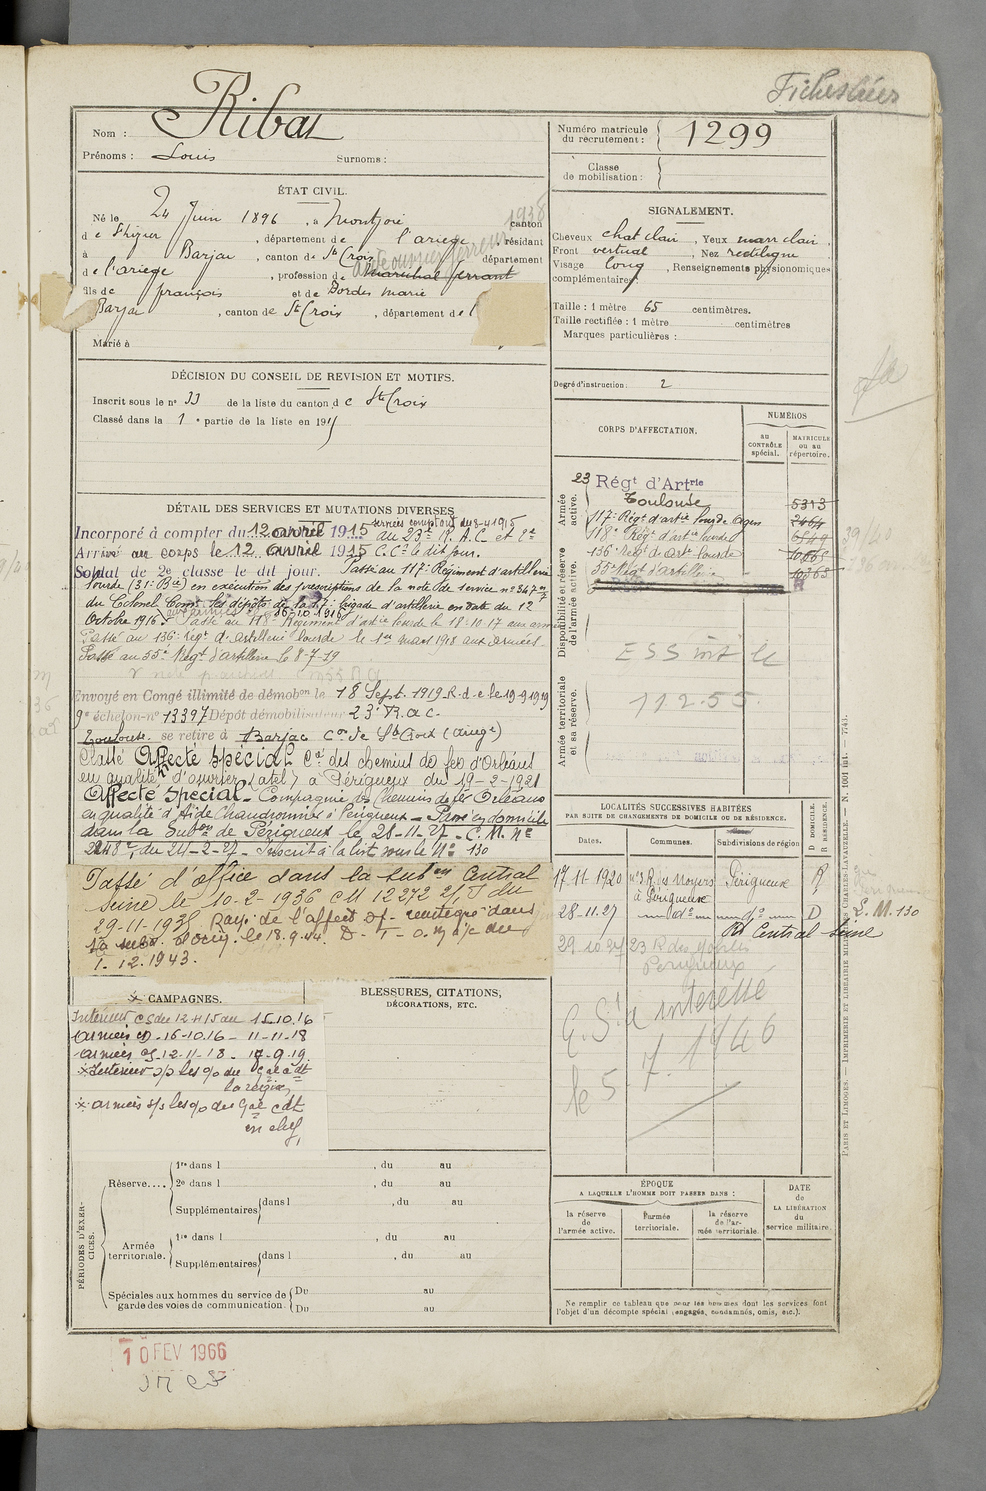 Nom : Ribat
Prénoms : Louis Surnoms :
ÉTAT CIVIL.
Né le 24 Juin 1896, à Montjoie canton
de St Lizier, département de l'ariège, résidant
à Barjac, canton de Ste Croix département
de l'ariège, profession de maréchal ferrant
fils de françois et de Bordes marie
Barjac, canton de Ste Croix, département de l
Marié à
DÉCISION DU CONSEIL DE REVISION ET MOTIFS.
Inscrit sous le n° 33 de la liste du canton de Ste Croix
Classé dans la 1e partie de la liste en 1915
DÉTAIL DES SERVICES ET MUTATIONS DIVERSES
Incorporé à compter du 12 avril 1915 au 23e R. A. C. et 2e
Arrivé au corps le 12 avril 1915 C.C. le dit jour.
Soldat de 2e classe le dit jour. Passé au 117e Régiment d'artillerie
lourde (31e Bie) en exécution des prescriptions de la note de service n° 367
du Colonel Comt les dépôts de la 17e brigade d'artillerie en date du 12
Octobre 1916. Passé au 118e Régiment d'artie lourde le 18-10-17 aux armées
Passé au 136e régt d'artillerie lourde le 1er mars 1918 aux armées.
Passé au 55e Régt d'artillerie le 8-7-19
Envoyé en Congé illimité de démobon le 18 Sept. 1919 R.d.c le 19-9-1919
9e échelon n° 13397 Dépôt démobilisateur 23e R.a.c.
Toulouse se retire à Barjac Con de Ste Croix (ariège)
Classé Affecté Spécial Cie des chemins de fer d'Orléans
en qualité d'ouvrier (atel) à Périgueux du 19-2-1921
Affecté Spécial - Compagnie des Chemins de fer Orléans
en qualité d'Aide Chaudronnier à Périgueux - Passé en domicile
dans la Subon de Périgueux le 28-11-27 - C. M. N°
2248, du 24-2-27 - Inscrit à la liste sous le N° 130
Passé d'office dans la subon Central
Seine le 10-2-1936 CM 12272 2/J du
29-11-1935 Rayé de l'affect Sp - réintégré dans
le 18.9.44. D - T - O.
1.12.1943.
CAMPAGNES.
Intérieur CS du 12 4 15 au 15.10.16
Armées CD - 16-10.16 - 11-11-18
Armées CS - 12-11-18 - 17-9-19.
× Intérieur s/s les o/o du Gal cdt
la région
× armées s/s les o/o du Gal cdt
en chef,
BLESSURES, CITATIONS,
DÉCORATIONS, ETC.
PÉRIODES D'EXERCICES.
Réserve....
1re dans l , du au
2e dans l , du au
Supplémentaires dans l , du au
Armée territoriale.
1re dans l , du au
Supplémentaires dans l , du au
Spéciales aux hommes du service de garde des voies de communication.
Du au
Du au
10 FEV 1966
Numéro matricule du recrutement : 1299
Classe de mobilisation :
SIGNALEMENT.
Cheveux chat clair, Yeux marr clair,
Front vertical, Nez rectiligne
Visage long, Renseignements physionomiques
complémentaires :
Taille : 1 mètre 65 centimètres.
Taille rectifiée : 1 mètre centimètres
Marques particulières :
Degré d'instruction : 2
CORPS D'AFFECTATION.
NUMÉROS
au CONTRÔLE spécial.
MATRICULE ou au répertoire.
Armée active.
Disponibilité et réserve de l'armée active.
Armée territoriale et sa réserve.
23 Régt d'Artrie
Toulouse 5313
117e Régt d'artie lourde Agen 2464
118e Régt d'artie lourde 6549
136e Régt d'art lourde 10665
55e Régt d'artillerie 10365
112.55.
LOCALITÉS SUCCESSIVES HABITÉES
PAR SUITE DE CHANGEMENTS DE DOMICILE OU DE RÉSIDENCE.
Dates. Communes. Subdivisions de région
D DOMICILE. R RÉSIDENCE.
17-11-1920 n°3 R. des Noyers à Périgueux Périgueux R
28-11-27 d° d° D L. M. 130
Rt Central Seine
29 10 27 23 R des
Périgueux
Q.S. d'interesse
le 5.7.1946
ÉPOQUE
A LAQUELLE L'HOMME DOIT PASSER DANS :
la réserve de l'armée active.
l'armée territoriale.
la réserve de l'armée territoriale.
DATE de LA LIBÉRATION du service militaire.
Ne remplir ce tableau que pour les hommes dont les services font
l'objet d'un décompte spécial (engagés, condamnés, omis, etc.).
PARIS ET LIMOGES. — IMPRIMERIE ET LIBRAIRIE MILITAIRES CHARLES-LAVAUZELLE. — N. 1001 bis. — 7743.